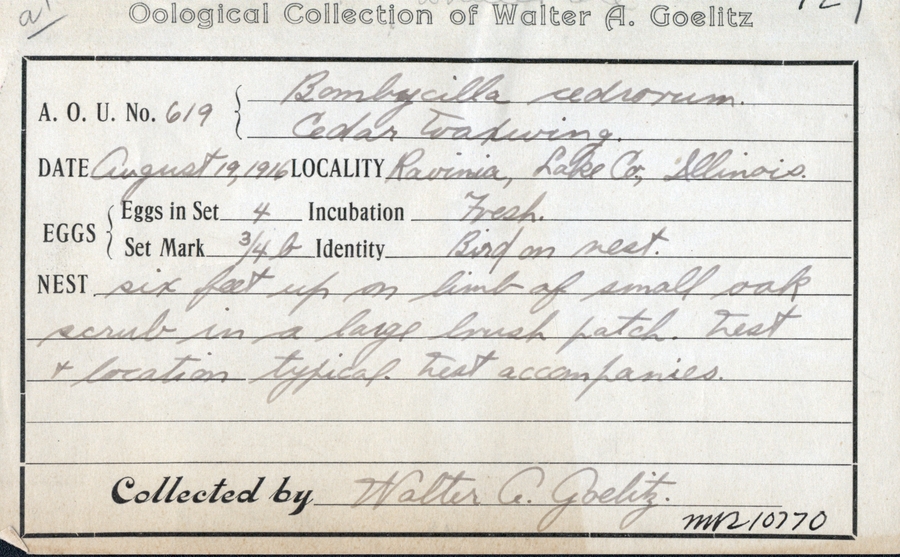 Oological Collection of Walter A. Goelitz
A. O. U. No. 619 Bombycilla cedrorum.
Cedar Waxwing.
DATE August 19, 1916 LOCALITY Ravinia, Lake Co., Illinois.
EGGS Eggs in Set 4 Incubation Fresh.
Set Mark 3/4 b Identity Bird on nest.
NEST six feet up on limb of small oak
scrub in a large brush patch. Nest
+ location typical. Nest accompanies.
Collected by Walter A. Goelitz.
10770